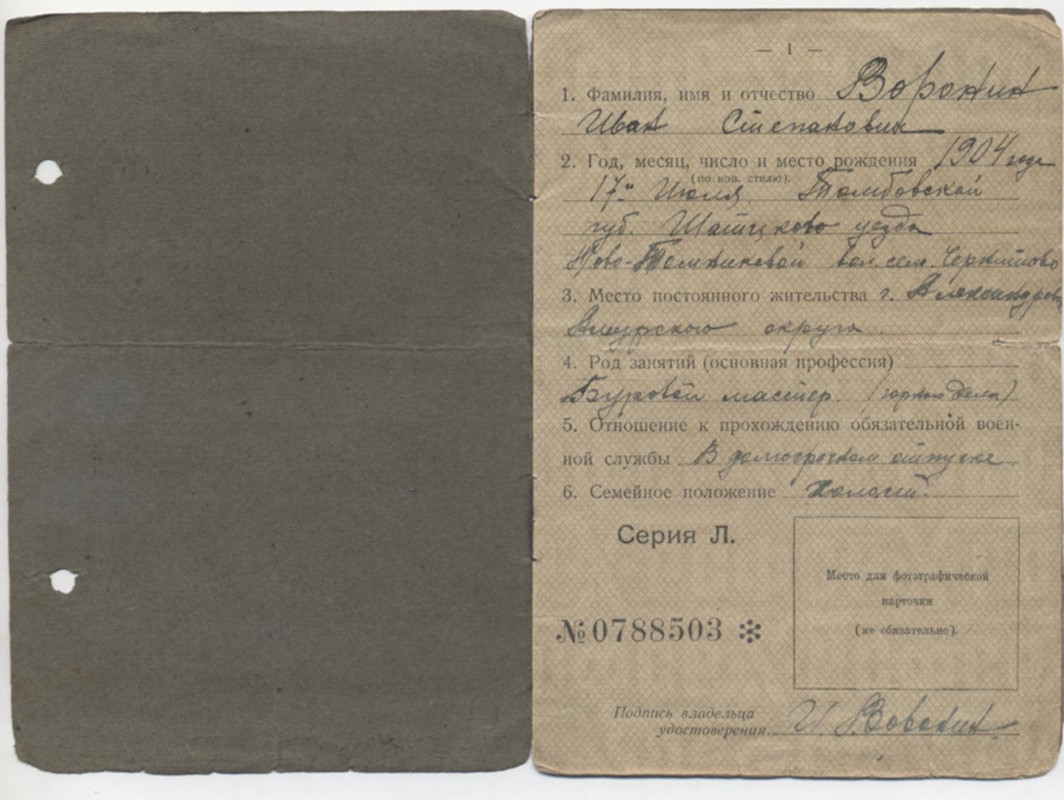 — 1 —
1. Фамилия, имя и отчество Воронин
Иван Степанович
2. Год, месяц, число и место рождения 1904 года
(по нов. стилю).
17го Июля Тамбовской
губ. Шатцково уезда
Ново-Томниковой вол. сел.
3. Место постоянного жительства г. Александров
Амурского округа.
4. Род занятий (основная профессия)
Буровой мастер. (горного дела)
5. Отношение к прохождению обязательной воен-
ной службы В долгосрочном отпуске
6. Семейное положение Холост.
Серия Л.
Место для фотографической
карточки
(не обязательно).
№ 0788503
Подпись владельца
удостоверения И. Воронин.